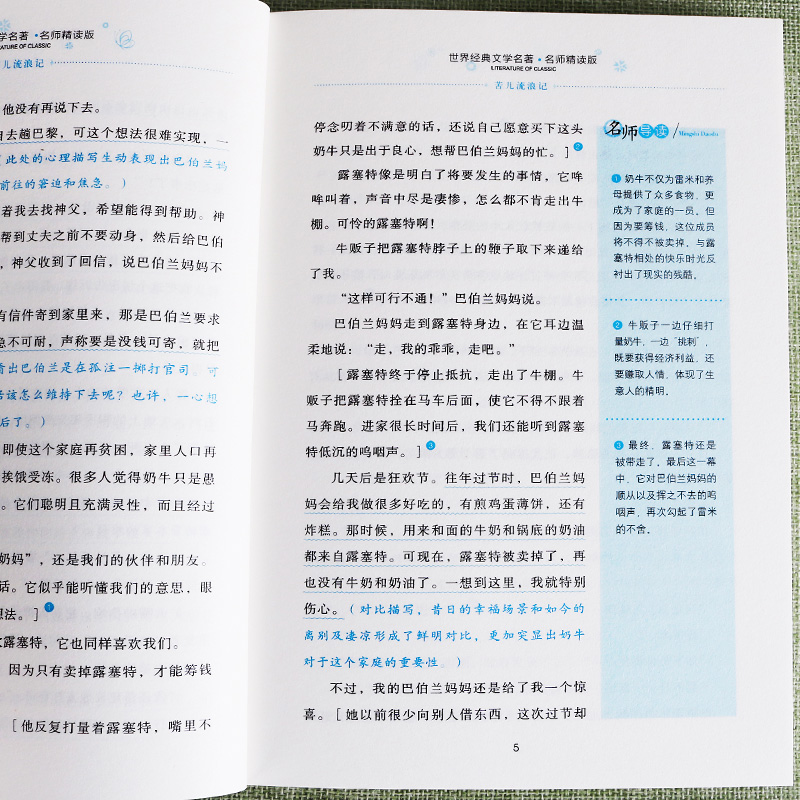 学名著·名师精读版
ATURE OF CLASSIC
儿流浪记
他没有再说下去。
自去趟巴黎，可这个想法很难实现，一
（此处的心理描写生动表现出巴伯兰妈
前往的窘迫和焦急。）
着我去找神父，希望能得到帮助。神
帮到丈夫之前不要动身，然后给巴伯
，神父收到了回信，说巴伯兰妈妈不
有信件寄到家里来，那是巴伯兰要求
急不可耐，声称要是没钱可寄，就把
看出巴伯兰是在孤注一掷打官司，可
活该怎么维持下去呢？也许，一心想
后了。）
即使这个家庭再贫困，家里人口再
挨饿受冻。很多人觉得奶牛只是愚
。它们聪明且充满灵性，而且经过
奶妈”，还是我们的伙伴和朋友。
话。它似乎能听懂我们的意思，眼
想法。］1
欢露塞特，它也同样喜欢我们。
因为只有卖掉露塞特，才能筹钱
［他反复打量着露塞特，嘴里不
世界经典文学名著·名师精读版
LITERATURE OF CLASSIC
苦儿流浪记
停念叨着不满意的话，还说自己愿意买下这头
奶牛只是出于良心，想帮巴伯兰妈妈的忙。］2
露塞特像是明白了将要发生的事情，它哞
哞叫着，声音中尽是凄惨，怎么都不肯走出牛
棚。可怜的露塞特啊！
牛贩子把露塞特脖子上的鞭子取下来递给
了我。
“这样可行不通！”巴伯兰妈妈说。
巴伯兰妈妈走到露塞特身边，在它耳边温
柔地说：“走，我的乖乖，走吧。”
［露塞特终于停止抵抗，走出了牛棚。牛
贩子把露塞特拴在马车后面，使它不得不跟着
马奔跑。进家很长时间后，我们还能听到露塞
特低沉的呜咽声。］3
几天后是狂欢节。往年过节时，巴伯兰妈
妈会给我做很多好吃的，有煎鸡蛋薄饼，还有
炸糕。那时候，用来和面的牛奶和锅底的奶油
都来自露塞特。可现在，露塞特被卖掉了，再
也没有牛奶和奶油了。一想到这里，我就特别
伤心。（对比描写，昔日的幸福场景和如今的
离别及凄凉形成了鲜明对比，更加突显出奶牛
对于这个家庭的重要性。）
不过，我的巴伯兰妈妈还是给了我一个惊
喜。［她以前很少向别人借东西，这次过节却
5
名师导读 Mingshi Daodu
1 奶牛不仅为雷米和养
母提供了众多食物，更
成为了家庭的一员。但
因为要筹钱，这位成员
将不得不被卖掉，与露
塞特相处的快乐时光反
衬出了现实的残酷。
2 牛贩子一边仔细打
量奶牛，一边“挑刺”，
既要获得经济利益，还
要赚取人情，体现了生
意人的精明。
3 最终，露塞特还是
被带走了。最后这一幕
中，它对巴伯兰妈妈的
顺从以及挥之不去的呜
咽声，再次勾起了雷米
的不舍。